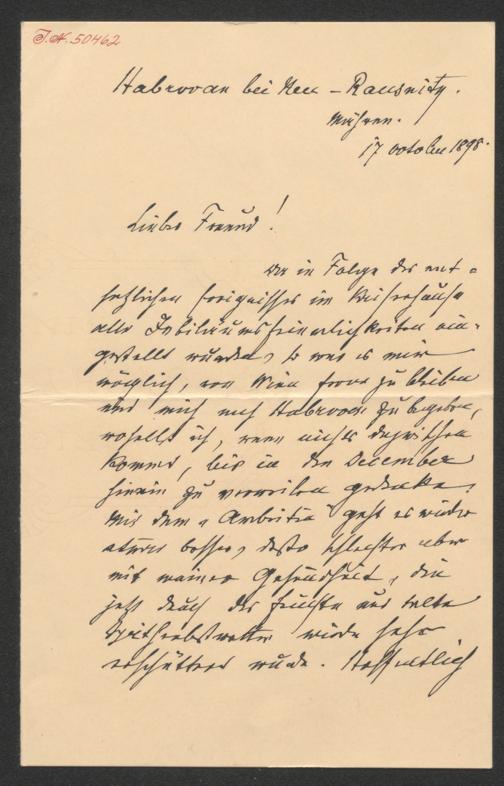 J.N. 50462
Habrovan bei Neu-Rausnitz.
Mähren.
17 october 1898.
Lieber Freund!
Da in Folge des ent-
setzlichen Ereignisses im Kaiserhause
alle Jubiläumsfeierlichkeiten ein-
gestellt wurden, so war es mir
möglich, von Wien ferne zu bleiben
und mich nach Habrovan zu begeben,
woselbst ich, wenn nichts dazwischen
kommt, bis in den December
hinein zu verweilen gedenke.
Mit dem „Arbeiten" geht es wieder
etwas besser, desto schlechter aber
mit meiner Gesundheit, die
jetzt durch das feuchte und kalte
Spätherbstwetter wieder sehr
erschüttert wurde. Hoffentlich